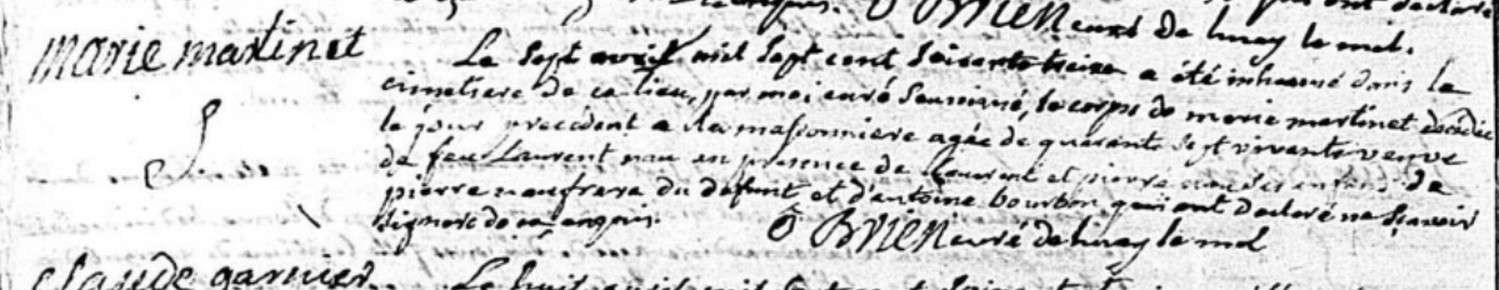 O Brien curé de luzay le mal.
marie martinet
Le sept avril mil sept cent soixante treize a été inhumé dans le
cimetiere de ce lieu, par moi curé soussigné, le corps de marie martinet decedée
le jour precedent a la massonniere agée de quarante sept vivante veuve
de feu Laurent nau en presence de Laurent et pierre nau ses enfans de
pierre nau frere du defunt et d'antoine bourbon qui ont declaré ne sçavoir
signer de ce enquis.
O Brien curé de luzay le mal
claude garnier
Le huit avril mil sept cent soixante